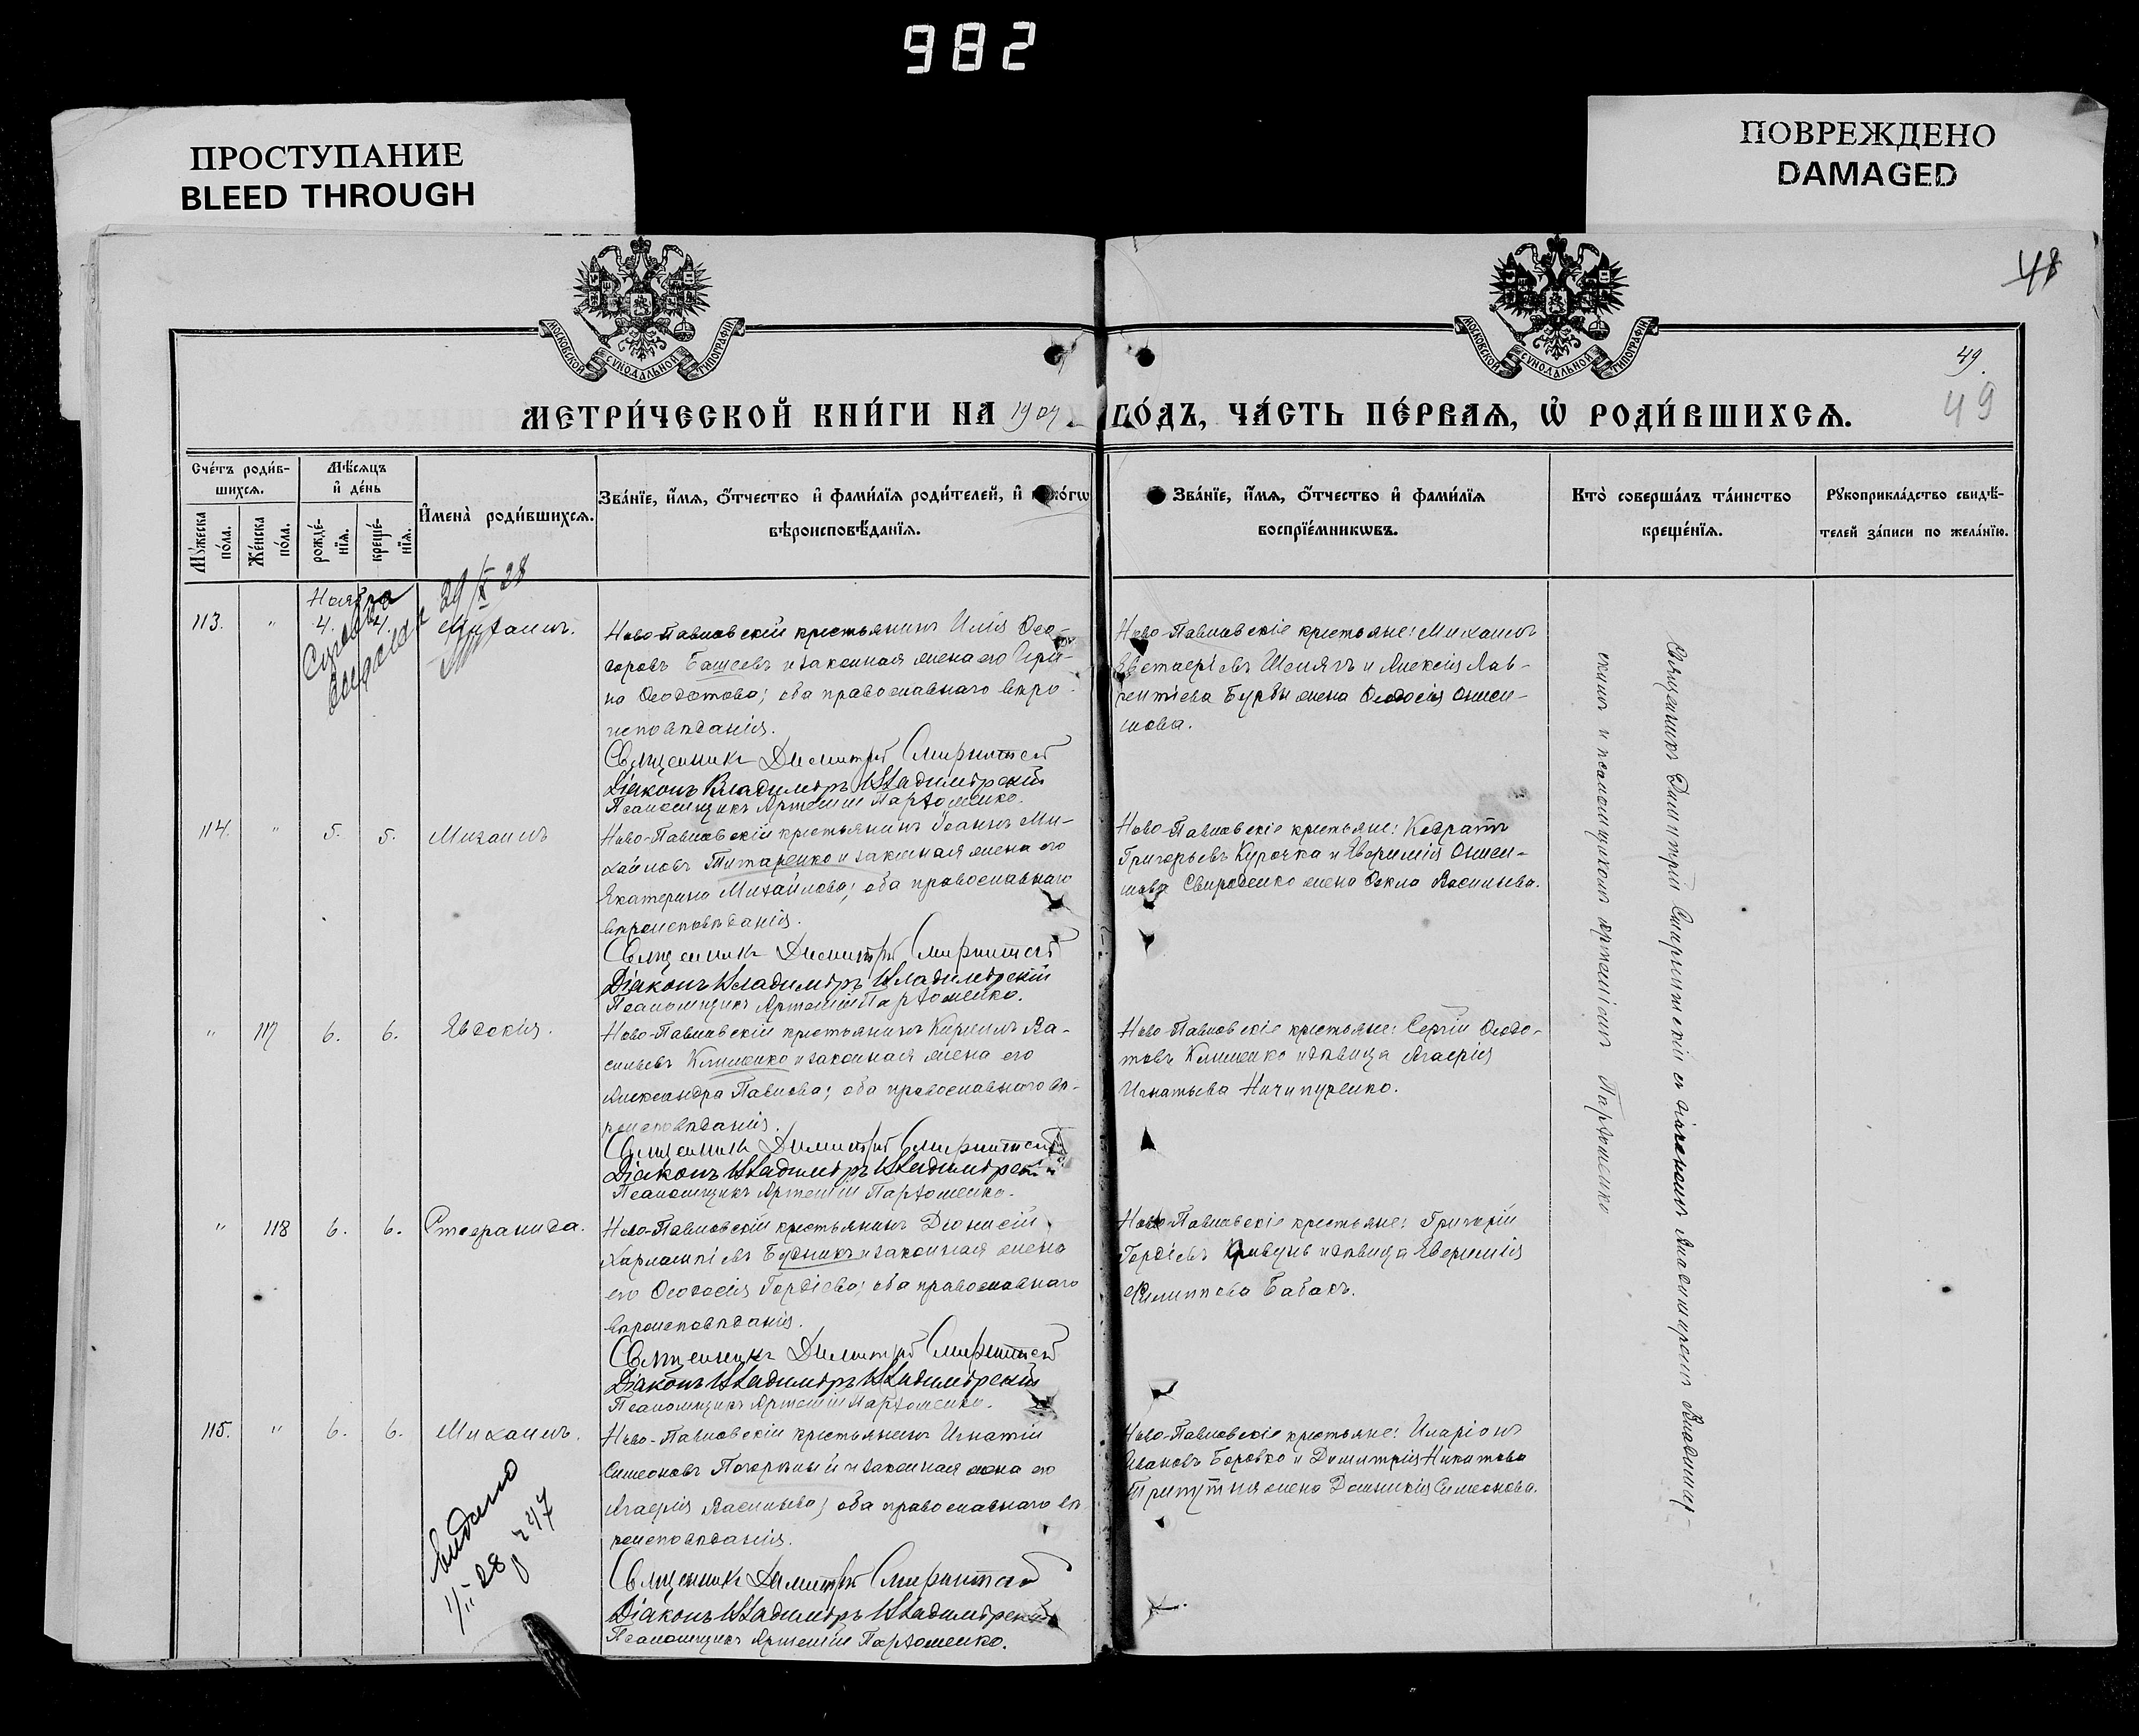 982
ПРОСТУПАНИЕ
BLEED THROUGH
ПОВРЕЖДЕНО
DAMAGED
48
МОСКОВСКОЙ СУНОДАЛЬНОЙ ТИПОГРАФІИ
МОСКОВСКОЙ СУНОДАЛЬНОЙ ТИПОГРАФІИ
49.
49
МЕТРИ́ЧЕСКОЙ КНИ́ГИ НА 1907 ГО́ДЪ, ЧА́СТЬ ПЕ́РВАѦ, Ѡ҆ РОДИ́ВШИХСѦ.
Сче́тъ роди́в-
шихсѧ.
Мѣ́сѧцъ
и҆ де́нь
Мꙋ́жеска
по́ла.
Же́нска
по́ла.
рожде́-
нїѧ.
креще́-
нїѧ.
И҆мена̀ роди́вшихсѧ.
Зва́нїе, и҆́мѧ, ѻ҆́тчество и҆ фами́лїѧ роди́телей, и҆
вѣроисповѣ́данїѧ.
Зва́нїе, и҆́мѧ, ѻ҆́тчество и҆ фами́лїѧ
воспрїе́мникѡвъ.
Кто̀ соверша́лъ та́инство
креще́нїѧ.
Рꙋкоприкла́дство свидѣ́-
телей за́писи по жела́нїю.
29/X 28
Ноября
113. " 4. 4. Михаилъ.
Ново-Павловскій крестьянинъ Илія Ѳео-
доровъ Бащеевъ и законная жена его Ири-
на Ѳеодотова; оба православнаго вѣро-
исповѣданія.
Священникъ Димитрій
Діаконъ Владиміръ Владимірскій
Псаломщикъ Артемій Пархоменко.
Ново-Павловскіе крестьяне: Михаилъ
Шелягъ и Алексія Лав-
рентіева Бурды жена Ѳеодосія Ониси-
мова.
114. " 5. 5. Михаилъ
Ново-Павловскій крестьянинъ Іоаннъ Ми-
хайловъ Титаренко и законная жена его
Екатерина Михайлова; оба православнаго
вѣроисповѣданія.
Священникъ Димитрій
Діаконъ Владиміръ Владимірскій
Псаломщикъ Артемій Пархоменко.
Ново-Павловскіе крестьяне: Кодратъ
Григорьевъ Курочка и Евѳимія Ониси-
мова Свириденко жена Ѳекла Васильева.
" 117 6. 6. Евдокія.
Ново-Павловскій крестьянинъ Кириллъ Ва-
сильевъ Клименко и законная жена его
Александра Павлова; оба православнаго вѣ-
роисповѣданія.
Священникъ Димитрій
Діаконъ Владиміръ Владимірскій
Псаломщикъ Артемій Пархоменко.
Ново-Павловскіе крестьяне: Сергій Ѳеодо-
товъ Клименко и дѣвица Агаѳія
Игнатьева Ничипуренко.
" 118 6. 6. Стефанида.
Ново-Павловскій крестьянинъ Діонисій
Харлампіевъ Будникъ и законная жена
его Ѳеодосія Гордіева; оба православнаго
вѣроисповѣданія.
Священникъ Димитрій
Діаконъ Владиміръ Владимірскій
Псаломщикъ Артемій Пархоменко.
Ново-Павловскіе крестьяне: Григорій
Гордіевъ и дѣвица Евѳимія
Филиппова Бабакъ.
115. " 6. 6. Михаилъ.
Ново-Павловскій крестьянинъ Игнатій
Симеоновъ Погорѣлый и законная жена его
Агаѳія Васильева; оба православнаго вѣ-
роисповѣданія.
Священникъ Димитрій
Діаконъ Владиміръ Владимірскій
Псаломщикъ Артемій Пархоменко.
Ново-Павловскіе крестьяне: Иларіонъ
Ивановъ Боровко и Димитрія Никитова
жена Домникія Симеонова.
видано
1/II 28
Священникъ Димитрій съ діакономъ Владиміромъ Владимір-
скимъ и псаломщикомъ Артеміемъ Пархоменко